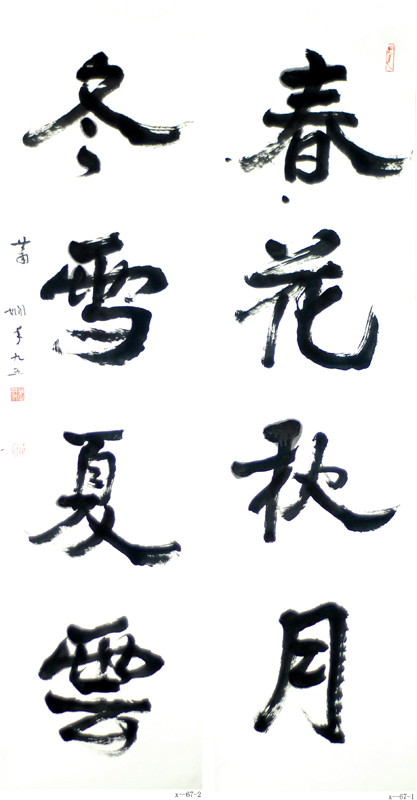 春花秋月
冬雪夏雲
蕭嫻年九五
x--67-2
x--67-1